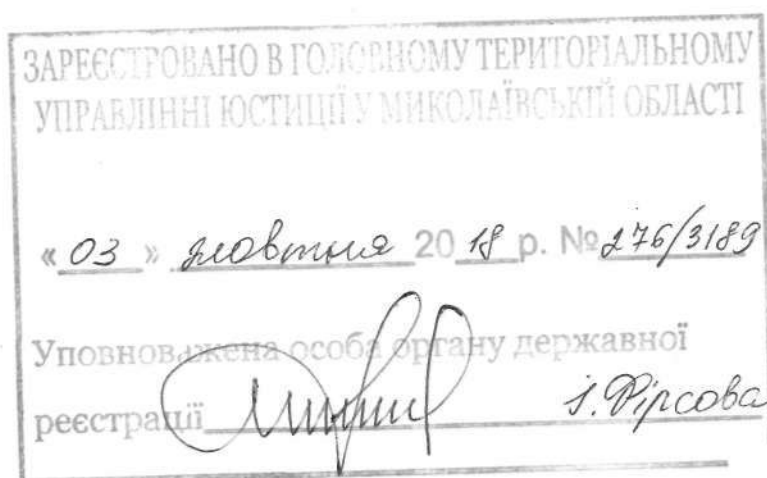 ЗАРЕЄСТРОВАНО В ГОЛОВНОМУ ТЕРИТОРІАЛЬНОМУ
УПРАВЛІННІ ЮСТИЦІЇ У МИКОЛАЇВСЬКІЙ ОБЛАСТІ
«03» жовтня 2018 р. № 276/3189
Уповноважена особа органу державної
реєстрації І. Фірсова